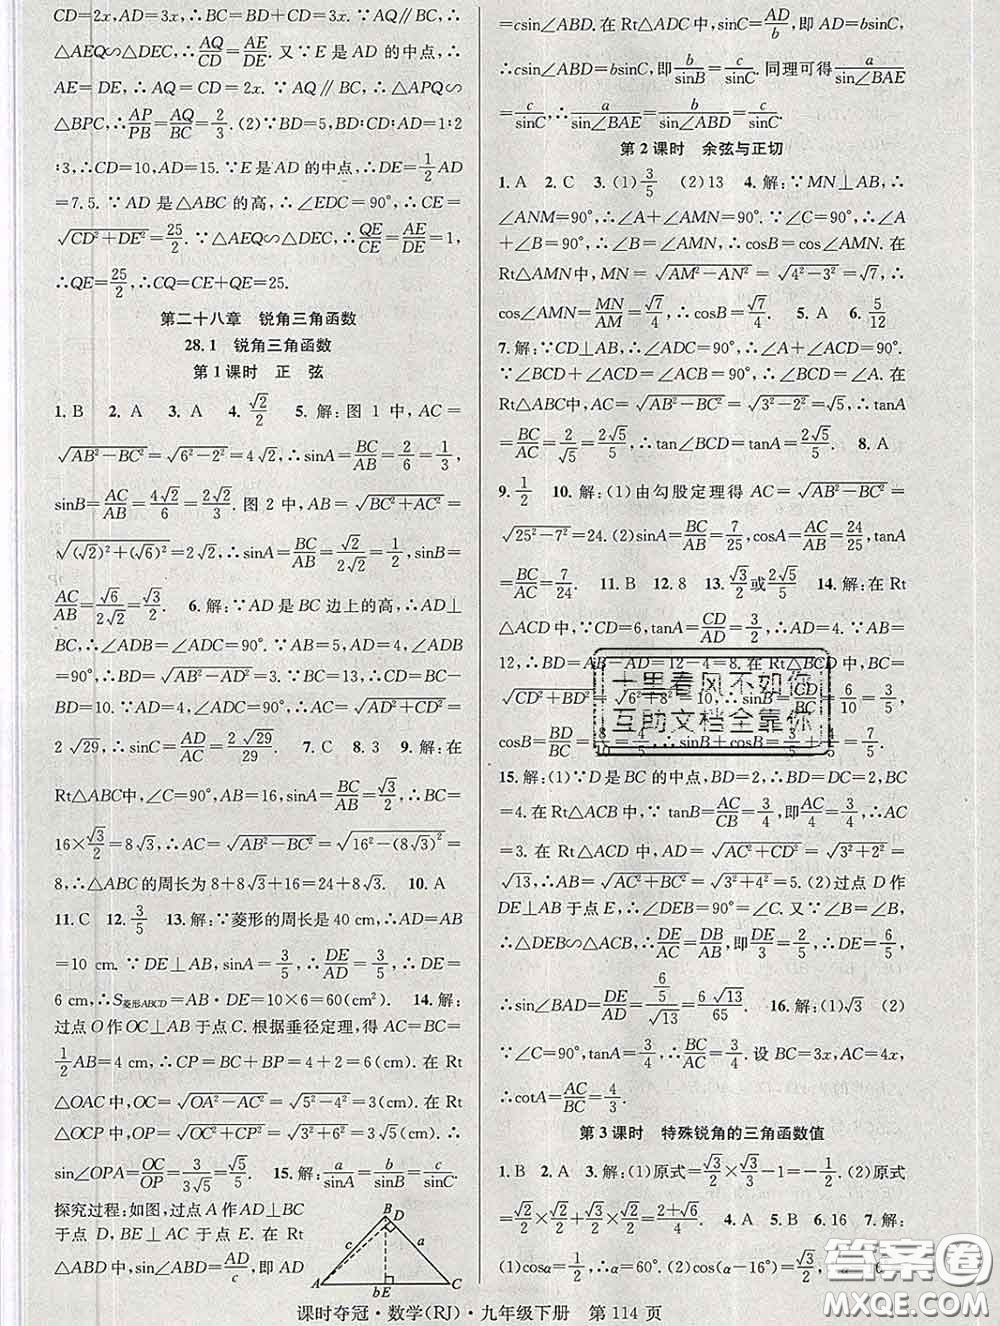 CD=2x,∴BC=BD+CD=3x.∵AQ∥BC,∴
△AEQ∽△DEC,∴AQ/CD=AE/DE.又∵E是AD的中点,∴
AE=DE,∴AQ=CD=2x.∵AQ∥BC,∴△APQ∽
△BPC,∴AP/PB=AQ/BC=2/3.(2)∵BD=5,BD:CD=1:2
:3,∴CD=10,AD=15.∵E是AD的中点,∴DE=1/2AD
=7.5.∵AD是△ABC的高,∴∠EDC=90°,∴CE=
√(CD²+DE²)=25/2.∵△AEQ∽△DEC,∴QE/CE=AE/DE=1,
∴QE=25/2,∴CQ=CE+QE=25.
第二十八章 锐角三角函数
28.1 锐角三角函数
第1课时 正 弦
1.B 2.A 3.A 4.√2/2 5.解:图1中,AC=
√(AB²-BC²)=√(6²-2²)=4√2,∴sinA=BC/AB=2/6=1/3,
sinB=AC/AB=4√2/6=2√2/3.图2中,AB=√(BC²+AC²)=
√((√2)²+(√6)²)=2√2,∴sinA=BC/AB=√2/2√2=1/2,sinB=
AC/AB=√6/2√2=√3/2. 6.解:∵AD是BC边上的高,∴AD⊥
BC,∴∠ADB=∠ADC=90°.∵AB=5,AD=4,∠ADB
=90°,∴BD=√(AB²-AD²)=3.∵BC=13,∴CD=BC-
BD=10.∵AD=4,∠ADC=90°,∴AC=√(AD²+CD²)=
2√29,∴sinC=AD/AC=2√29/29. 7.C 8.3 9.解:在
Rt△ABC中,∠C=90°,AB=16,sinA=√3/2,∴BC=
16×√3/2=8√3,∴AC=√(AB²-BC²)=√(16²-(8√3)²)=
8,∴△ABC的周长为8+8√3+16=24+8√3. 10.A
11.C 12.3/5 13.解:∵菱形的周长是40 cm,∴AD=AB
=10 cm.∵DE⊥AB,sinA=3/5,∴DE/AD=3/5,∴DE=
6 cm,∴S菱形ABCD=AB·DE=10×6=60(cm). 14.解:
过点O作OC⊥AB于点C.根据垂径定理,得AC=BC=
1/2AB=4 cm,∴CP=BC+BP=4+2=6(cm).在Rt
△OAC中,OC=√(OA²-AC²)=√(5²-4²)=3(cm).在Rt
△OCP中,OP=√(OC²+CP²)=√(3²+6²)=3√5(cm).∴
sin∠OPA=OC/OP=3/3√5=√5/5. 15.解:a/sinA=b/sinB=c/sinC.
探究过程:如图,过点A作AD⊥BC
于点D,BE⊥AC于点E.在Rt
△ABD中,sin∠ABD=AD/c,即AD
B
D
c
a
A
bE
C
=csin∠ABD.在Rt△ADC中,sinC=AD/b,即AD=bsinC,
∴csin∠ABD=bsinC,即b/sinB=c/sinC.同理可得a/sin∠BAE
=c/sinC,∴a/sin∠BAE=b/sin∠ABD=c/sinC.
第2课时 余弦与正切
1.A 2.C 3.(1)3/5 (2)13 4.解:∵MN⊥AB,∴
∠ANM=90°,∴∠A+∠AMN=90°.∵∠C=90°,∴∠A
+∠B=90°,∴∠B=∠AMN,∴cosB=cos∠AMN.在
Rt△AMN中,MN=√(AM²-AN²)=√(4²-3²)=√7,∴
cos∠AMN=MN/AM=√7/4,∴cosB=√7/4. 5.A 6.5/12
7.解:∵CD⊥AB,∴∠ADC=90°,∴∠A+∠ACD=90°.
∵∠BCD+∠ACD=∠ACB=90°,∴∠BCD=∠A.在
Rt△ABC中,AC=√(AB²-BC²)=√(3²-2²)=√5,∴tanA
=BC/AC=2/√5=2√5/5,∴tan∠BCD=tanA=2√5/5. 8.A
9.1/2 10.解:(1)由勾股定理得AC=√(AB²-BC²)=
√(25²-7²)=24.(2)sinA=BC/AB=7/25,cosA=AC/AB=24/25,tanA
=BC/AC=7/24. 11.B 12.8 13.√3/2或2√5/5 14.解:在Rt
△ACD中,∵CD=6,tanA=CD/AD=3/2,∴AD=4.∵AB=
12,∴BD=AB-AD=12-4=8.在Rt△BCD中,BC=
√(CD²+BD²)=√(6²+8²)=10,∴sinB=CD/BC=6/10=3/5,
cosB=BD/BC=8/10=4/5,∴sinB+cosB=3/5+4/5=7/5.
15.解:(1)∵D是BC的中点,BD=2,∴BD=DC=2,BC
=4.在Rt△ACB中,∵tanB=AC/CB=3/4,即AC/4=3/4,∴AC
=3.在Rt△ACD中,AD=√(AC²+CD²)=√(3²+2²)=
√13,∴AB=√(AC²+BC²)=√(3²+4²)=5.(2)过点D作
DE⊥AB于点E,∴∠DEB=90°=∠C.又∵∠B=∠B,
∴△DEB∽△ACB,∴DE/AC=DB/AB,即DE/3=2/5,∴DE=6/5,
∴sin∠BAD=DE/AD=(6/5)/√13=6√13/65. 16.解:(1)√3 (2)
∵∠C=90°,tanA=3/4,∴BC/AC=3/4.设BC=3x,AC=4x,
∴cotA=AC/BC=4/3.
第3课时 特殊锐角的三角函数值
1.B 2.A 3.解:(1)原式=√3/2×√3/2-1=-1/4.(2)原式
=√2/2×√2/2+√2/2×√3/2=2+√6/4. 4.A 5.B 6.16 7.解:
(1)cosα=1/2,∴α=60°.(2)cos(α-16°)=√3/2,
十里春风不如你
互助文档全靠你
答案圈
MXQE.COM
课时夺冠·数学(RJ)·九年级下册 第114页